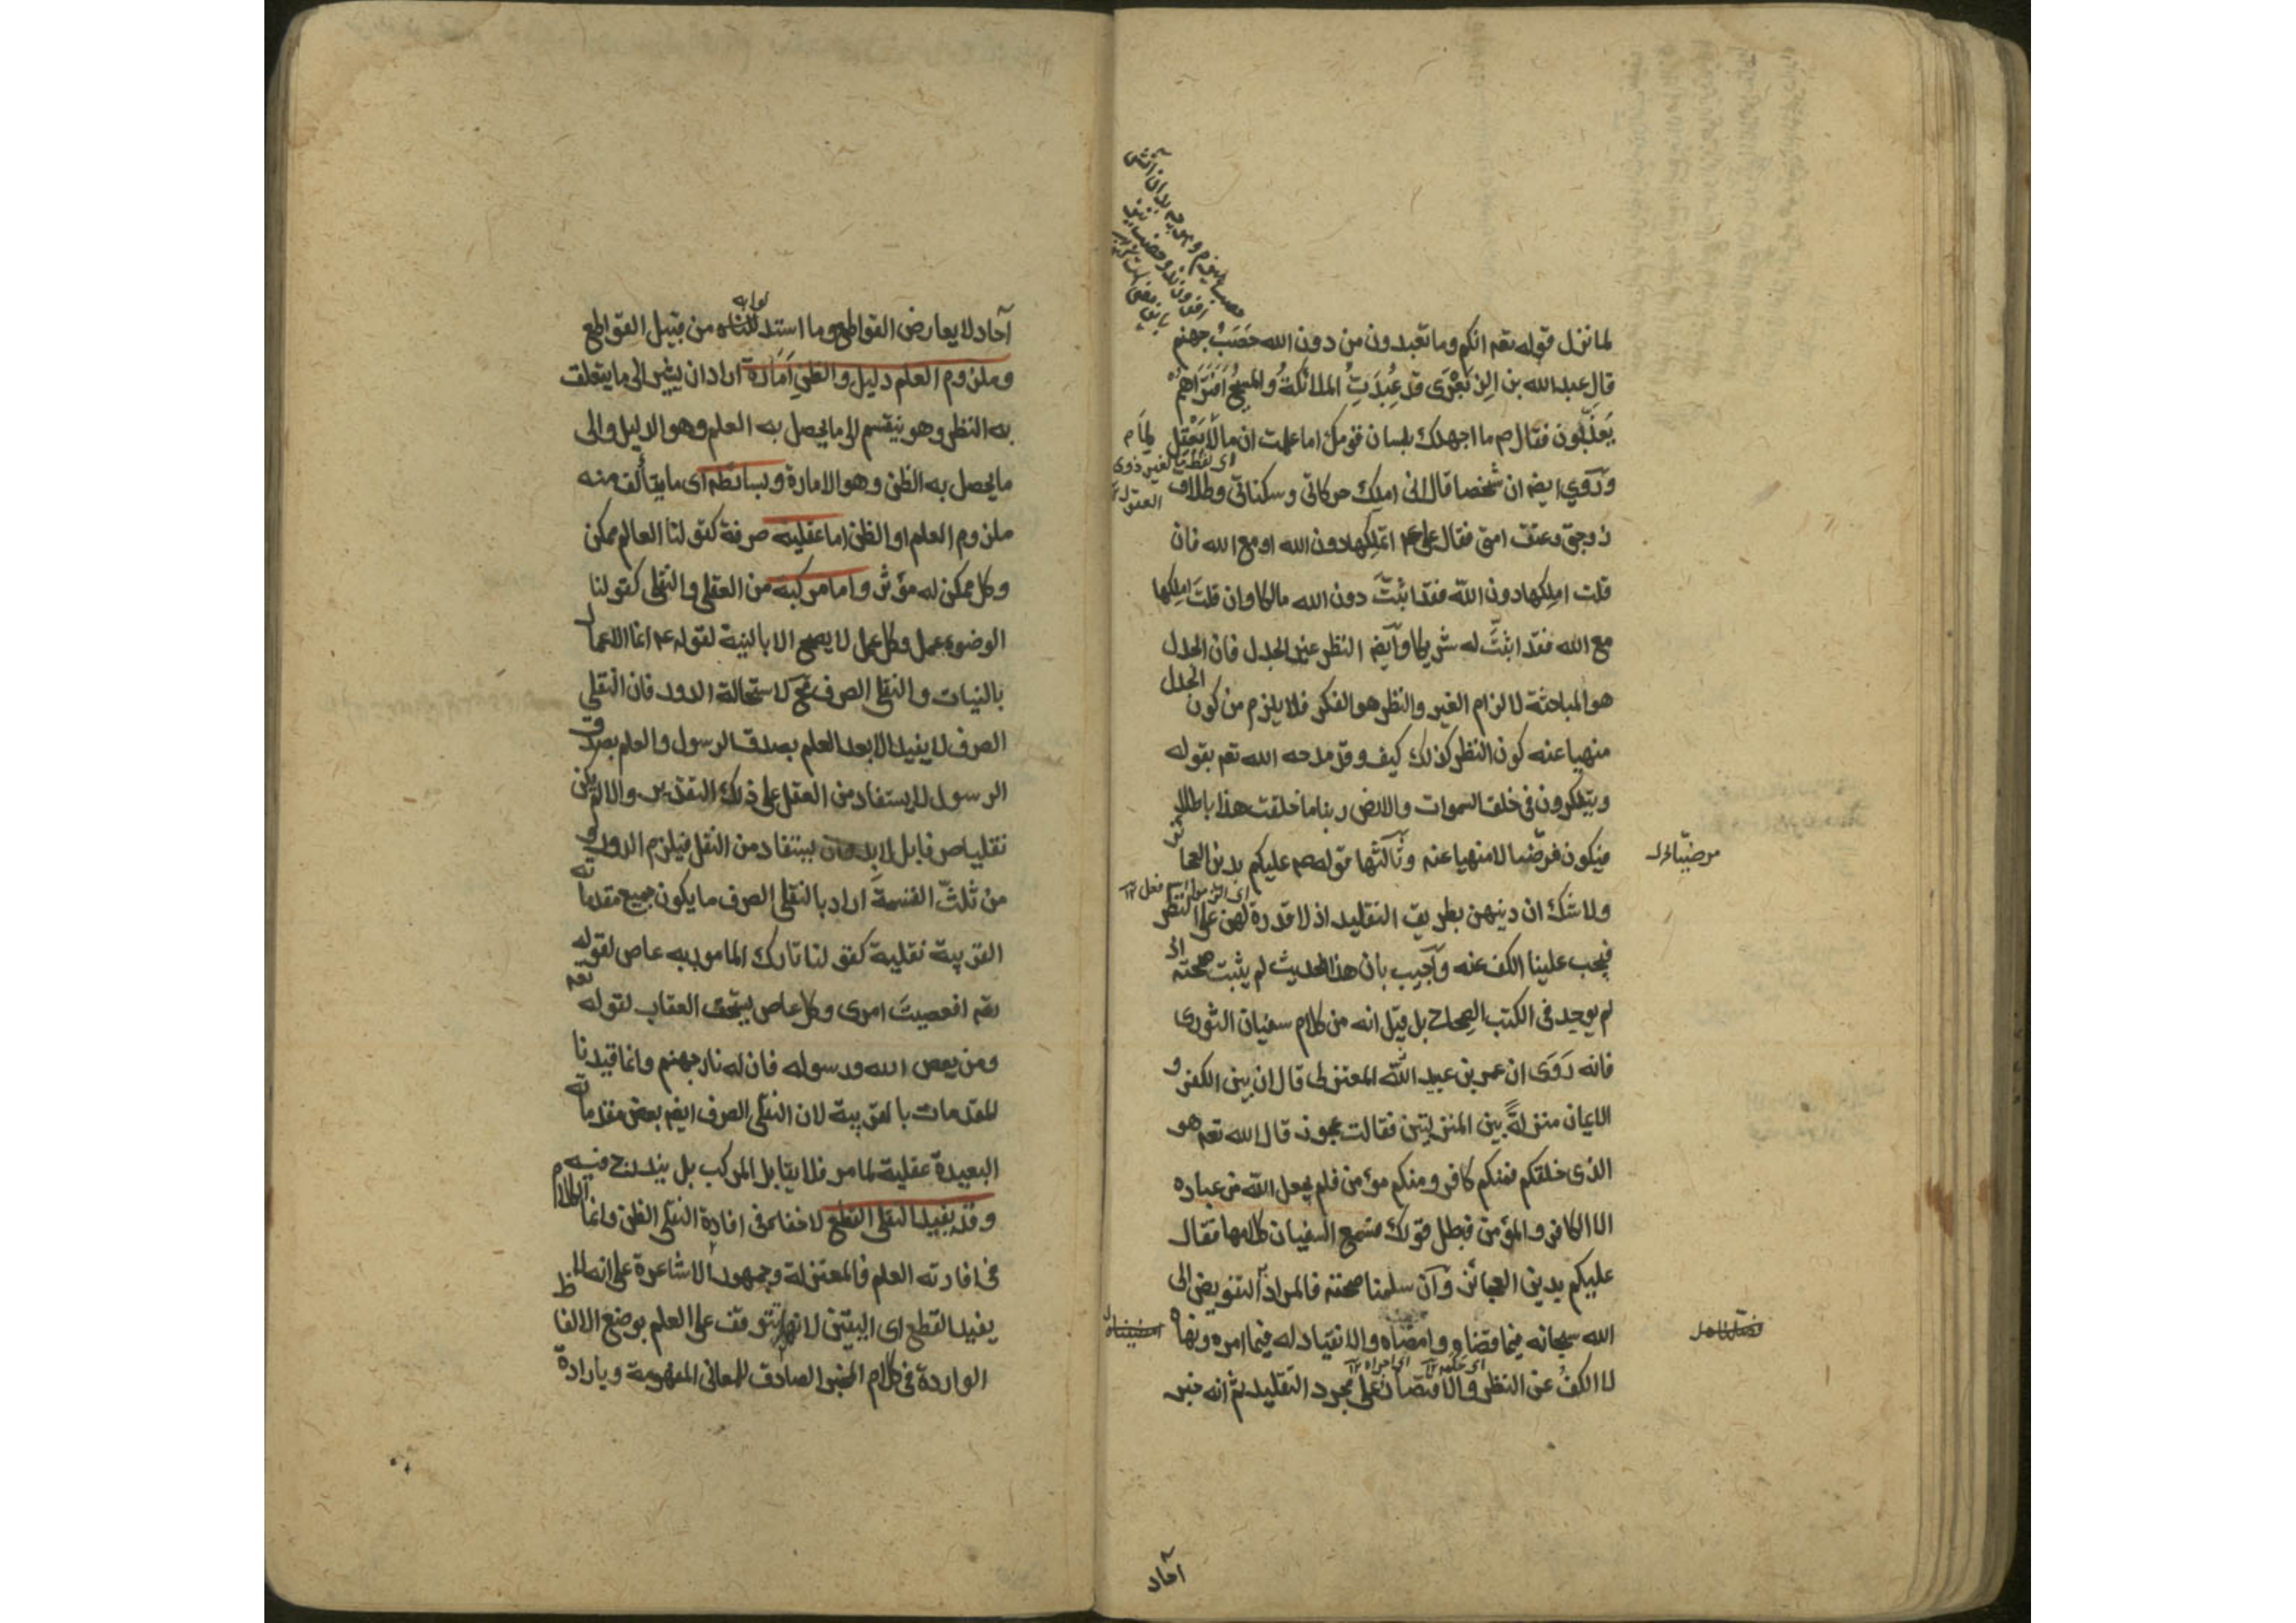 لما نزل قوله تعم انكم وما تعبدون من دون الله حَصَبُ جهنم
قال عبد الله بن الزبَعْرَى قد عُبِدَتِ الملائكةُ والمسيحُ أفَتَرَاهم
يُعَذَّبُون فقال صم ما اجهلك بلسان قومك اما علمت ان ما لا يَعْقِل
اى لفظة ما لغير ذوى
العقول
ورُوِيَ ايضم ان شخصا قال انى املك حركاتى وسكناتى وطلاق
زوجتى وعتق امتى فقال على عم اتملكها دون الله او مع الله فان
قلت املكها دون الله فقد اثبتَّ دون الله مالكا وان قلتَ املكها
مع الله فقد اثبتَّ له شريكا وآيضم النظر غير الجدل فان الجدل
هو المباحثة لالزام الغير والنظر هو الفكر فلا يلزم من كون الجدل
منهيا عنه كون النظر كذلك كيف وقد مدحه الله تعم بقوله
ويتفكرون فى خلق السموات والارض ربنا ما خلقت هذا باطلا
فيكون مرضيا لا منهيا عنه وثالثها قوله عم عليكم بدين العجائز
ولا شك ان دينهن بطريق التقليد اذ لا قدرة لهن على النظر
فيجب علينا الكف عنه وآجيب بان هذا الحديث لم يثبت صحته اذ
لم يوجد فى الكتب الصحاح بل قيل انه من كلام سفيان الثورى
فانه رَوَى ان عمر بن عبيد الله المعتزلى قال ان بين الكفر و
الايمان منزلةً بين المنزلتين فقالت عجوز قال الله تعم هو
الذى خلقكم فمنكم كافر ومنكم مؤمن فلم يجعل الله من عباده
الا الكافر والمؤمن فبطل قولك فسمع السفيان كلامها فقال
عليكم بدين العجائز وآن سلمنا صحته فالمراد التفويض الى
الله سبحانه فيما قضاه وامضاه والانقياد له فيما امره ونهاه
لا الكفُّ عن النظر والاقتصار على مجرد التقليد ثم انه خبر
آحاد
آحاد لا يعارض القواطع وما استدللنا به من قبيل القواطع
وملزوم العلم دليل والظنِ اَمَارة اراد ان يشير الى ما يتعلق
به النظر وهو ينقسم الى ما يحصل به العلم وهو الدليل والى
ما يحصل به الظن وهو الامارة وبسائطه اى ما يتألف منه
ملزوم العلم او الظن اما عقلية صرفة كقولنا العالم ممكن
وكل ممكن له مؤثر واما مركبة من العقلى والنقلى كقولنا
الوضوء عمل وكل عمل لا يصح الا بالنية لقوله عم انما الاعمال
بالنيات والنقلى الصرف مح لاستحالة الدور فان النقلى
الصرف لا يفيد الا بعد العلم بصدق الرسول والعلم بصدق
الرسول لا يستفاد من العقل على ذلك التقدير والا لم يكن
نقليا صرفا بل لا بد وان يستفاد من النقل فيلزم الدور و
من ثلث القسمة اراد بالنقلى الصرف ما يكون جميع مقدماته
القريبة نقلية كقولنا تارك المامور به عاص لقوله
تعم افعصيت امرى وكل عاص يستحق العقاب لقوله تعم
ومن يعص الله ورسوله فان له نار جهنم وانما قيدنا
المقدمات بالقريبة لان النقلى الصرف ايضم بعض مقدماته
البعيدة عقلية لما مر فلا يقابل المركب بل يندرج فيه
وقد يفيد النقلى القطع لا خفاء فى افادة النقلى الظن وانما الكلام
فى افادته العلم فالمعتزلة وجمهور الاشاعرة على انه لا
يفيد القطع اى اليقين لانها تتوقف على العلم بوضع الالفاظ
الواردة فى كلام المخبر الصادق للمعانى المفهومة وبارادة